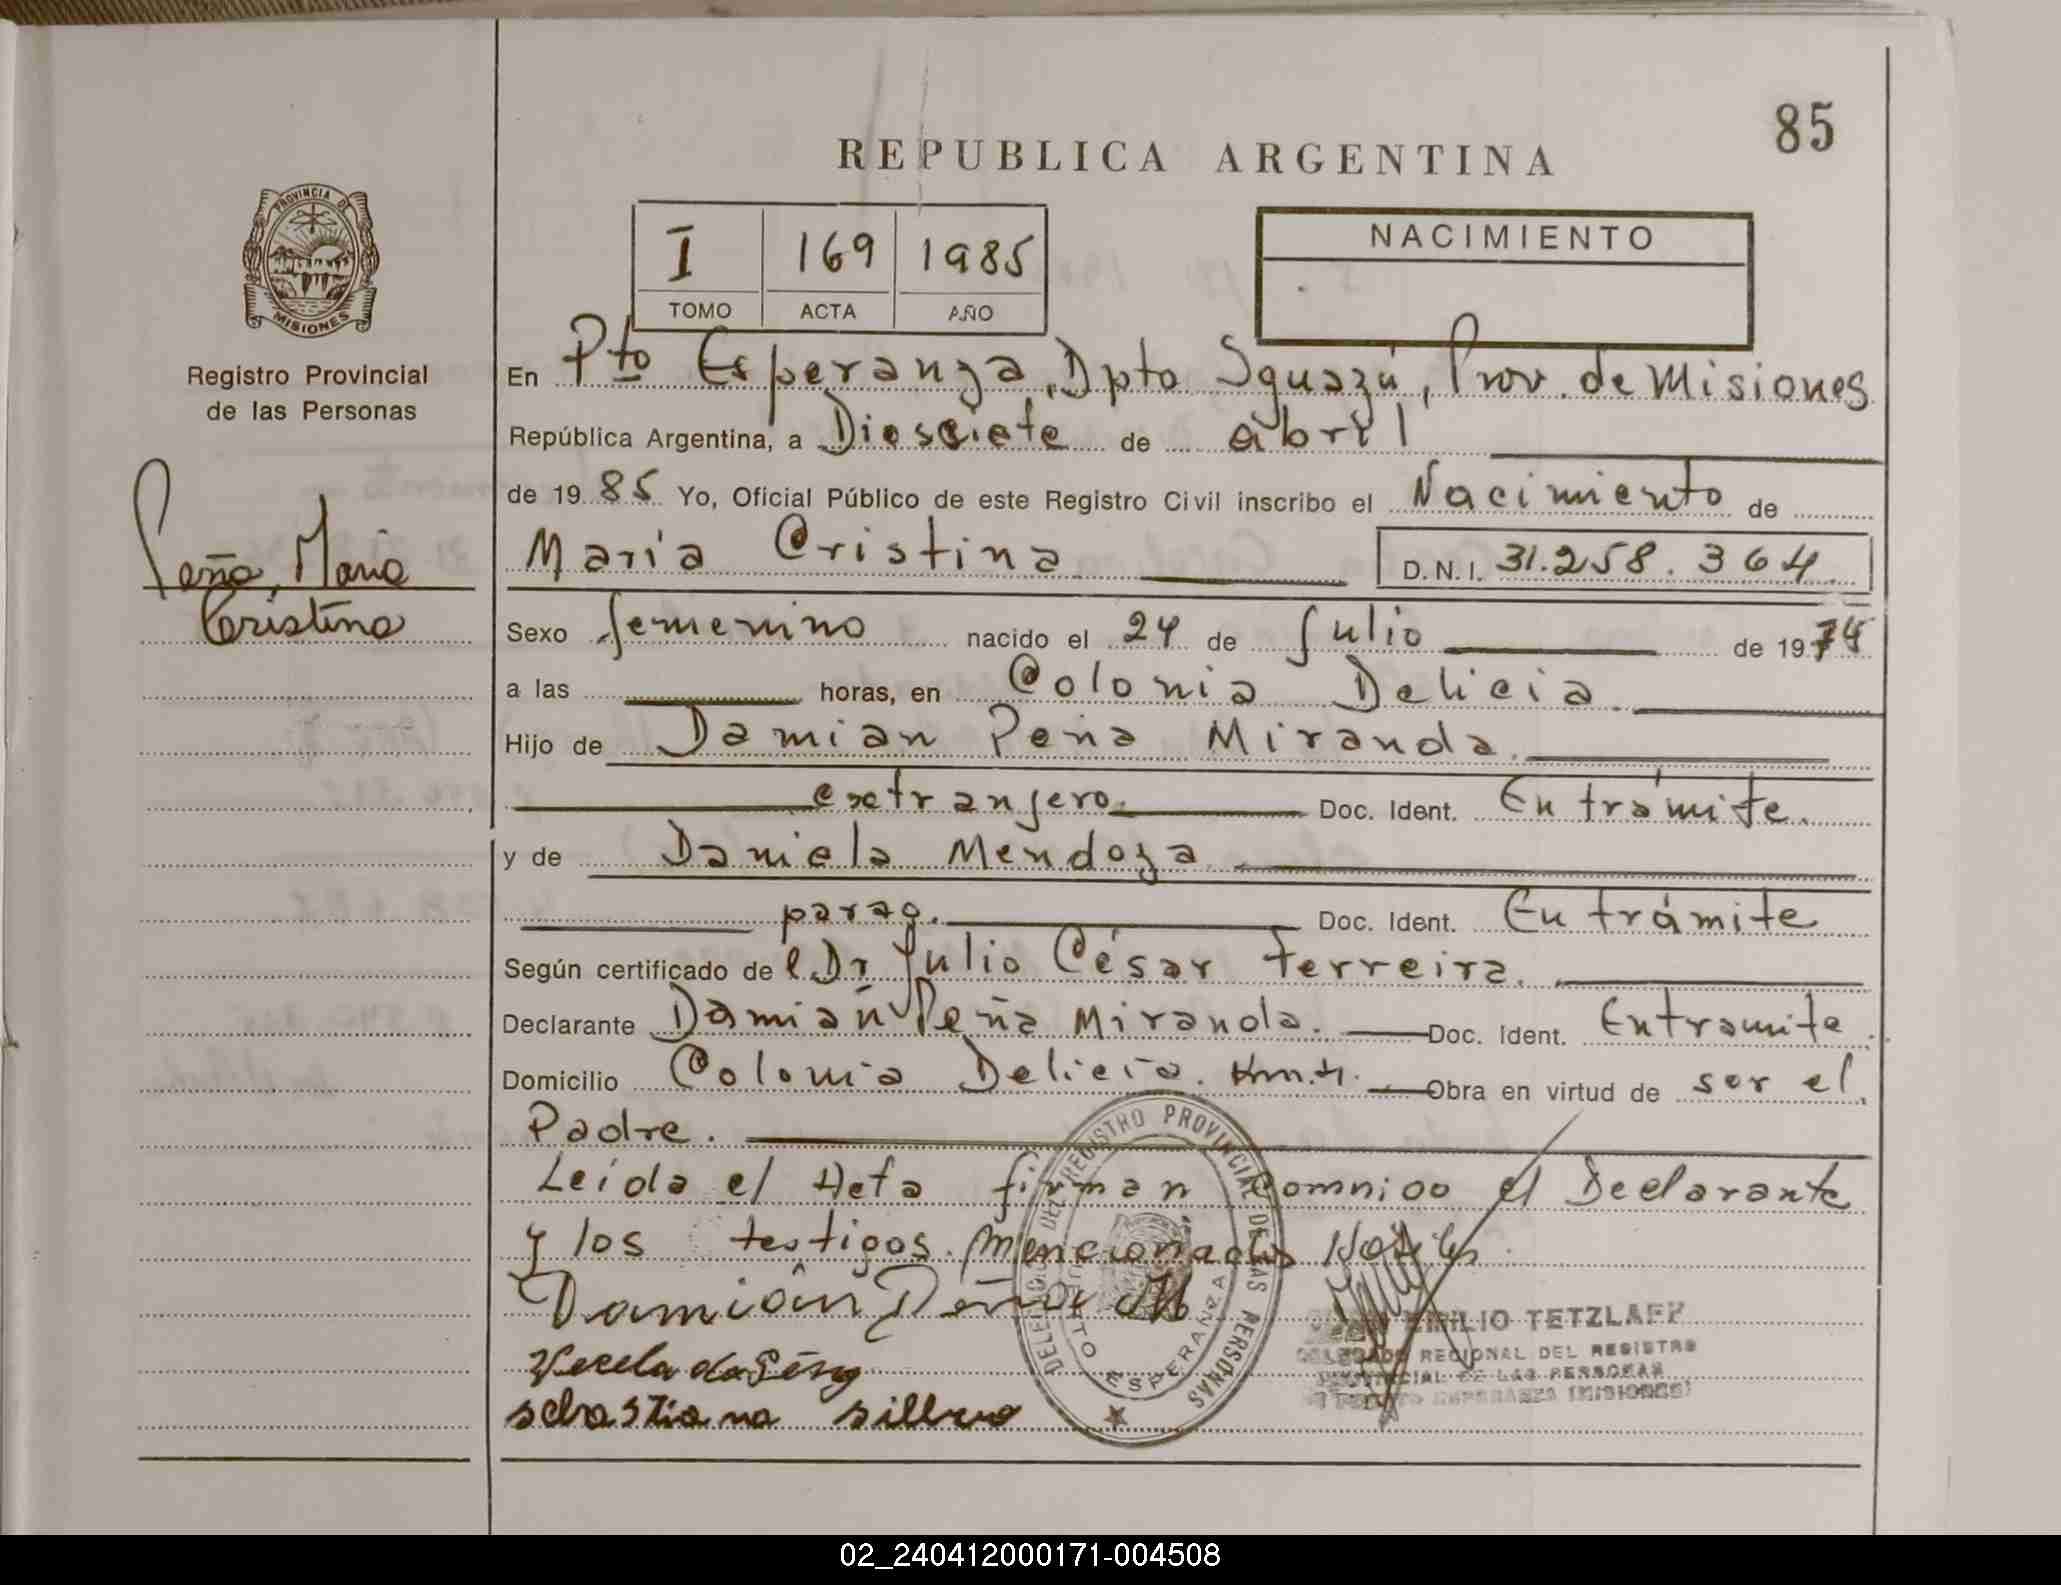 85
REPUBLICA ARGENTINA
PROVINCIA DE
MISIONES
Registro Provincial
de las Personas
I 169 1985
TOMO ACTA AÑO
NACIMIENTO
En Pto Esperanza, Dpto Iguazú, Prov. de Misiones
República Argentina, a Diesciete de abril
de 1985 Yo, Oficial Público de este Registro Civil inscribo el Nacimiento de
Peña, Maria
Cristina
María Cristina D.N.I. 31.258.364
Sexo femenino nacido el 24 de Julio de 1974
a las horas, en Colonia Delicia
Hijo de Damian Peña Miranda
extranjero Doc. Ident. En trámite.
y de Daniela Mendoza
parag. Doc. Ident. En trámite
Según certificado de l Dr Julio César Ferreira.
Declarante Damián Peña Miranda. Doc. Ident. En tramite.
Domicilio Colonia Delicia. Obra en virtud de ser el
Padre.
Leída el Acta firman el Declarante
y los testigos. Mencionados
Damián Peña M
sebastiana
DELEG. DEL REGISTRO PROVINCIAL DE LAS PERSONAS
PUERTO ESPERANZA
EMILIO TETZLAFF
DELEGADO REGIONAL DEL REGISTRO
PROVINCIAL DE LAS PERSONAS
PUERTO ESPERANZA (MISIONES)
02_240412000171-004508